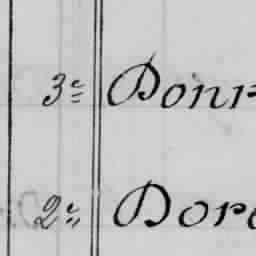 3e Donn
2e Doro